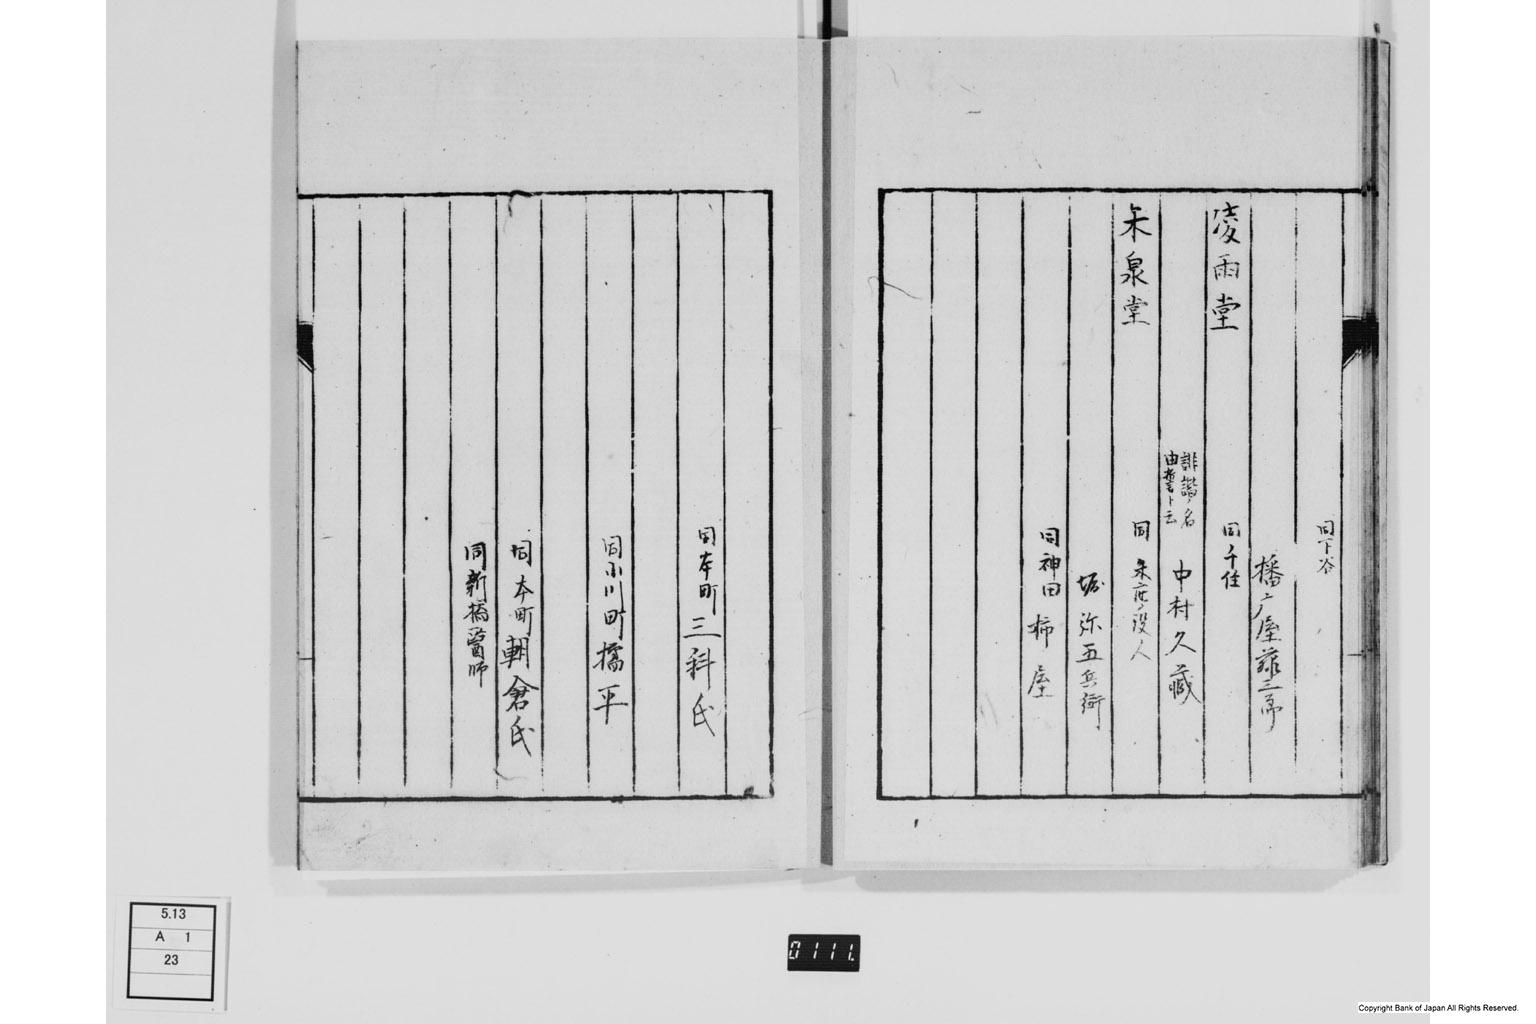 同下谷
播广屋藤三郎
凌雨堂
同千住
誹諧ノ名
由誓ト云
中村久蔵
朱泉堂
同朱座ノ役人
堀弥五兵衛
同神田
柿屋
同本町
三科氏
同小川町
橘平
同本町
朝倉氏
同新橋醫師
5.13
A 1
23
0111.
Copyright Bank of Japan All Rights Reserved.